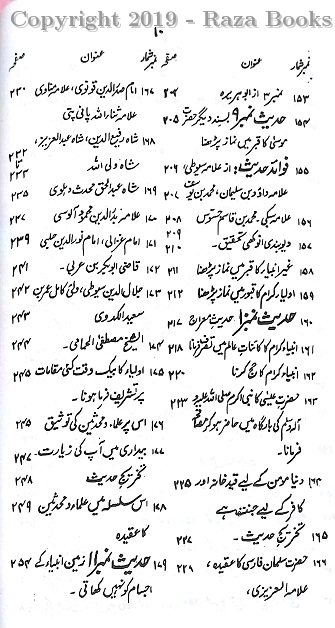 Copyright 2019 - Raza Books
۱۰
نمبر شمار عنوان صفحہ
۱۵۳ نمبر ۳ از ابو ہریرہ ۲۰۴
۱۵۴ حدیث نمبر ۹ بسند دیگر حضرت ۲۰۵
موسیٰ کا قبر میں نماز پڑھنا
۱۵۵ فوائد حدیث: از علامہ سیوطی، ۲۰۶
علامہ داؤد بن سلیمان، محمد بن یوسف ۲۰۷
۱۵۶ علامہ سبکی، محمد بن قاسم جسوس ۲۰۸
۲۰۹
۱۵۷ دیوبندی انوکھی تحقیق۔ ۲۱۰
۱۵۸ غیر انبیاء کا قبر میں نماز پڑھنا ۲۱۱
۱۵۹ اولیاء کرام کا قبور میں نماز پڑھنا ۲۱۲
۱۶۰ حدیث نمبر۱۰ حدیث معراج ۲۱۷
۱۶۱ انبیاء کرام کا کائنات عالم میں تصرف فرمانا ۲۱۸
۱۶۲ انبیاء کرام کا حج کرنا ۲۲۰
۱۶۳ حضرت عیسیٰ کا نبی اکرم صلی اللہ علیہ ۲۲۳
وآلہ وسلم کی بارگاہ میں حاضر ہو کر
فرمانا۔
۱۶۴ دنیا مومن کے لیے قید خانہ اور ۲۲۵
کافر کے لیے جنت ہے
۱۶۵ تخریج حدیث۔ ۲۲۷
۱۶۶ حضرت سلمان فارسی کا عقیدہ، ۲۲۸
علامہ العزیزی،
نمبر شمار عنوان صفحہ
۱۶۷ امام صدر الدین قونوی، علامہ مناوی ۲۳۰
علامہ ثناء اللہ پانی پتی
۱۶۸ شاہ رفیع الدین، شاہ عبدالعزیز، ۲۳۲
شاہ ولی اللہ
۱۶۹ شاہ عبدالحق محدث دہلوی ۲۳۵
۱۷۰ علامہ سید محمود آلوسی ۲۳۷
۱۷۱ امام غزالی، امام نور الدین حلبی ۲۳۹
۱۷۲ قاضی ابوبکر بن عربی۔ ۲۴۱
۱۷۳ جلال الدین سیوطی، ولی کامل عمر بن ۲۴۲
سعید الکدوی ۲۴۳
۱۷۴ الشیخ مصطفیٰ الحمامی۔ ۲۴۴
۱۷۵ اولیاء کا بیک وقت کئی مقامات ۲۴۵
پر تشریف فرما ہونا۔
۱۷۶ اس پر علماء و محدثین کی توثیق ۲۴۵
۱۷۷ بیداری میں آپ کی زیارت۔ ۲۴۷
تخریج حدیث ۲۴۸
۱۷۸ اس سلسلہ میں علماء و محدثین ۲۴۹
کا عقیدہ
۱۷۹ حدیث نمبر ۱۱ زمین انبیاء کے ۲۵۴
اجسام کو نہیں کھاتی۔